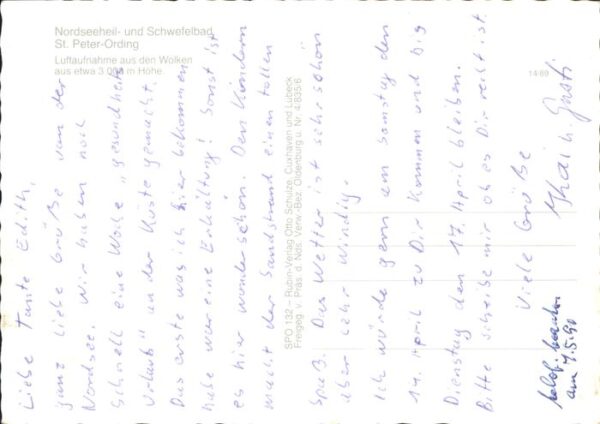 Nordseeheil- und Schwefelbad
St. Peter-Ording
Luftaufnahme aus den Wolken
aus etwa 3.000 m Höhe.
14/89
SPO 132 – Rubin-Verlag Otto Schulze, Cuxhaven und Lübeck
Freigeg. v. Präs. d. Nds. Verw.-Bez. Oldenburg u. Nr. 4/835/6
Liebe Tante Edith,
ganz liebe Grüße von der
Nordsee. Wir haben noch
schnell eine Woche „gesundheits
urlaub" an der Küste gemacht.
Das erste was ich hier bekommen
habe war eine Erkältung! Sonst ist
es hier wunderschön. Den Kindern
macht der Sandstrand einen tollen
Spaß. Das Wetter ist sehr schön
aber sehr windig.
Ich würde gern am Samstag den
14. April zu Dir kommen und big
Dienstag den 17. April bleiben.
Bitte schreibe mir ob es Dir recht ist
Viele Grüße
am 7.5.90